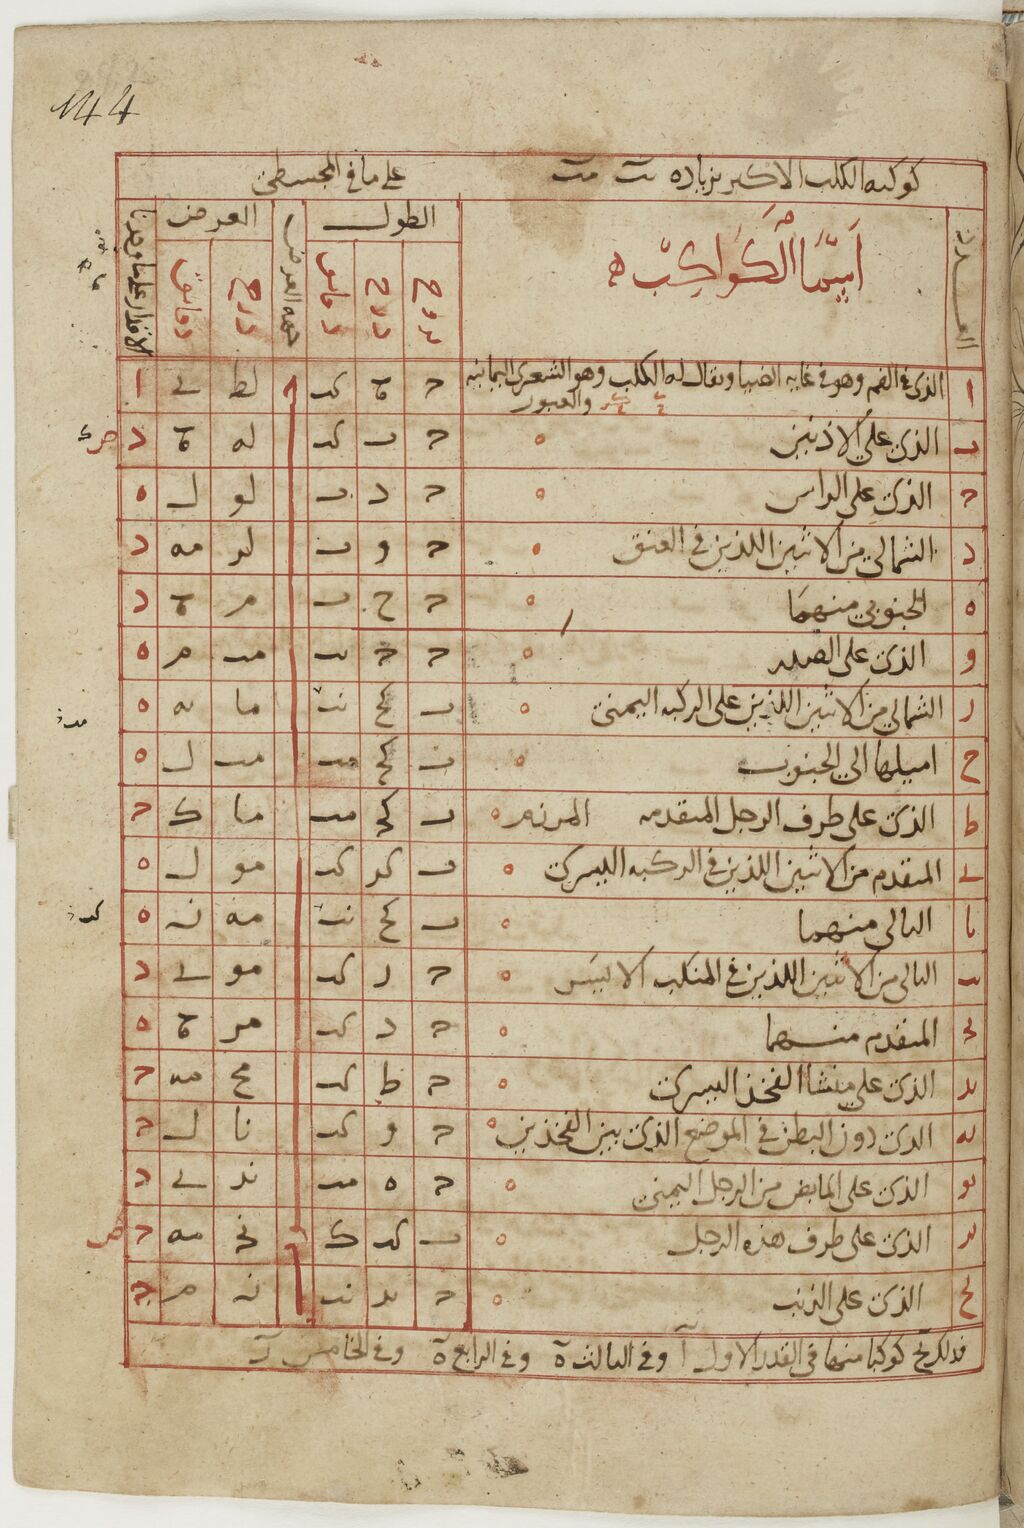 144
كوكبه الكلب الاكبر بزياده يب مب على ما في المجسطي
العدد
اسما الكواكب
الطول
جهه العرض
العرض
الاقدار على ما وجدنا
بروج درج دقايق درج دقايق
ا الذي في الفم وهو في غايه الضيا ويقال له الكلب وهو الشعرى اليمانيه ح ة كد لط ى ا
والعبور
ب الذي على الاذنين ح ب كد له ة د
ح الذي على الراس ح د ب لو ل ه
د الشمالي من الاثنين اللذين في العنق ح و ب لر مه د
ه الجنوبي منهما ح ح ب م ة د
و الذي على الصدر ح ح ىب مب م ه
ر الشمالي من الاثنين اللذين على الركبه اليمنى ب كح نب ما ىه ه
ح اميلهما الى الجنوب ب كح مب مب ل ه
ط الذي على طرف الرجل المتقدمه المرزم ب كح مب ما ك ح
ى المتقدم من الاثنين اللذين في الركبه اليسرى ب كر كد مو ل ه
يا التالي منهما ب كح نب مه نه ه
يب التالي من الاثنين اللذين في المنكب الايسر ح ر كد مو ى د
يح المتقدم منهما ح د كد مر ة ه
يد الذي على منشا الفخذ اليسرى ح ط كد مح مه ح
يه الذي دون البطن في الموضع الذي بين الفخذين ح و كد نا ل ح
يو الذي على المابض من الرجل اليمنى ح ه مب ند ى د
ير الذي على طرف هذه الرجل ب كد ك نح مه ح
يح الذي على الذنب ح يد نب نه م ح
فذلك يح كوكبا منها في القدر الاول ا وفي الثالث ه وفي الرابع ه وفي الخامس ر